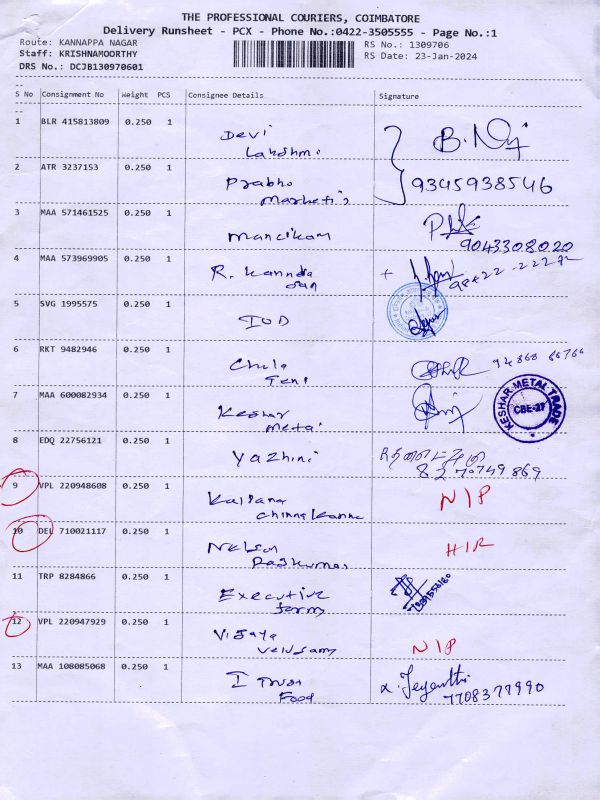 THE PROFESSIONAL COURIERS, COIMBATORE
Delivery Runsheet - PCX - Phone No.:0422-3505555 - Page No.:1
Route: KANNAPPA NAGAR RS No.: 1309706
Staff: KRISHNAMOORTHY RS Date: 23-Jan-2024
DRS No.: DCJB130970601
S No Consignment No Weight PCS Consignee Details Signature
1 BLR 415813809 0.250 1 Devi
Lakshmi
2 ATR 3237153 0.250 1 Prabho 9345938546
3 MAA 571461525 0.250 1 Manickam
9043308020
4 MAA 573969905 0.250 1 R. Kannda
5 SVG 1995575 0.250 1 IOD
6 RKT 9482946 0.250 1 Chola
7 MAA 600082934 0.250 1 Keshar
Metal
KESHAR METAL TRADE
CBE-27
8 EDQ 22756121 0.250 1 Yazhini
9 VPL 220948608 0.250 1 Kalpana N/P
Chinnakannu
10 DEL 710021117 0.250 1 Nelson H/R
Rajkumar
11 TRP 8284866 0.250 1 Executive
12 VPL 220947929 0.250 1 Vijaya N/P
Velusamy
13 MAA 108085068 0.250 1 I Trust Jeyanthi
Food 7708377990